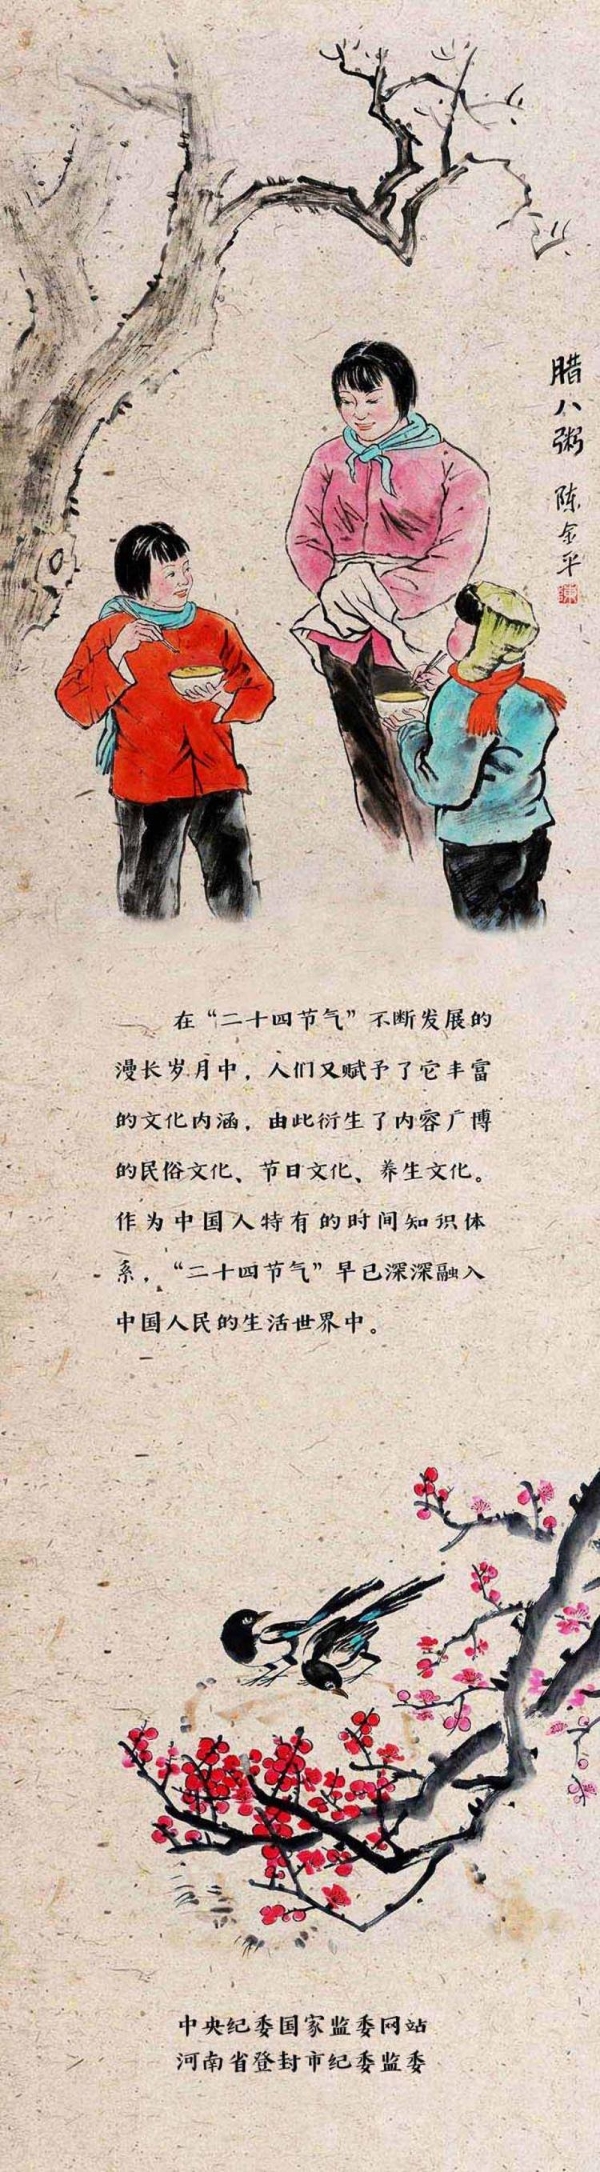 腊八粥 陈金平
陈
在“二十四节气”不断发展的
漫长岁月中，人们又赋予了它丰富
的文化内涵，由此衍生了内容广博
的民俗文化、节日文化、养生文化。
作为中国人特有的时间知识体
系，“二十四节气”早已深深融入
中国人民的生活世界中。
中央纪委国家监委网站
河南省登封市纪委监委